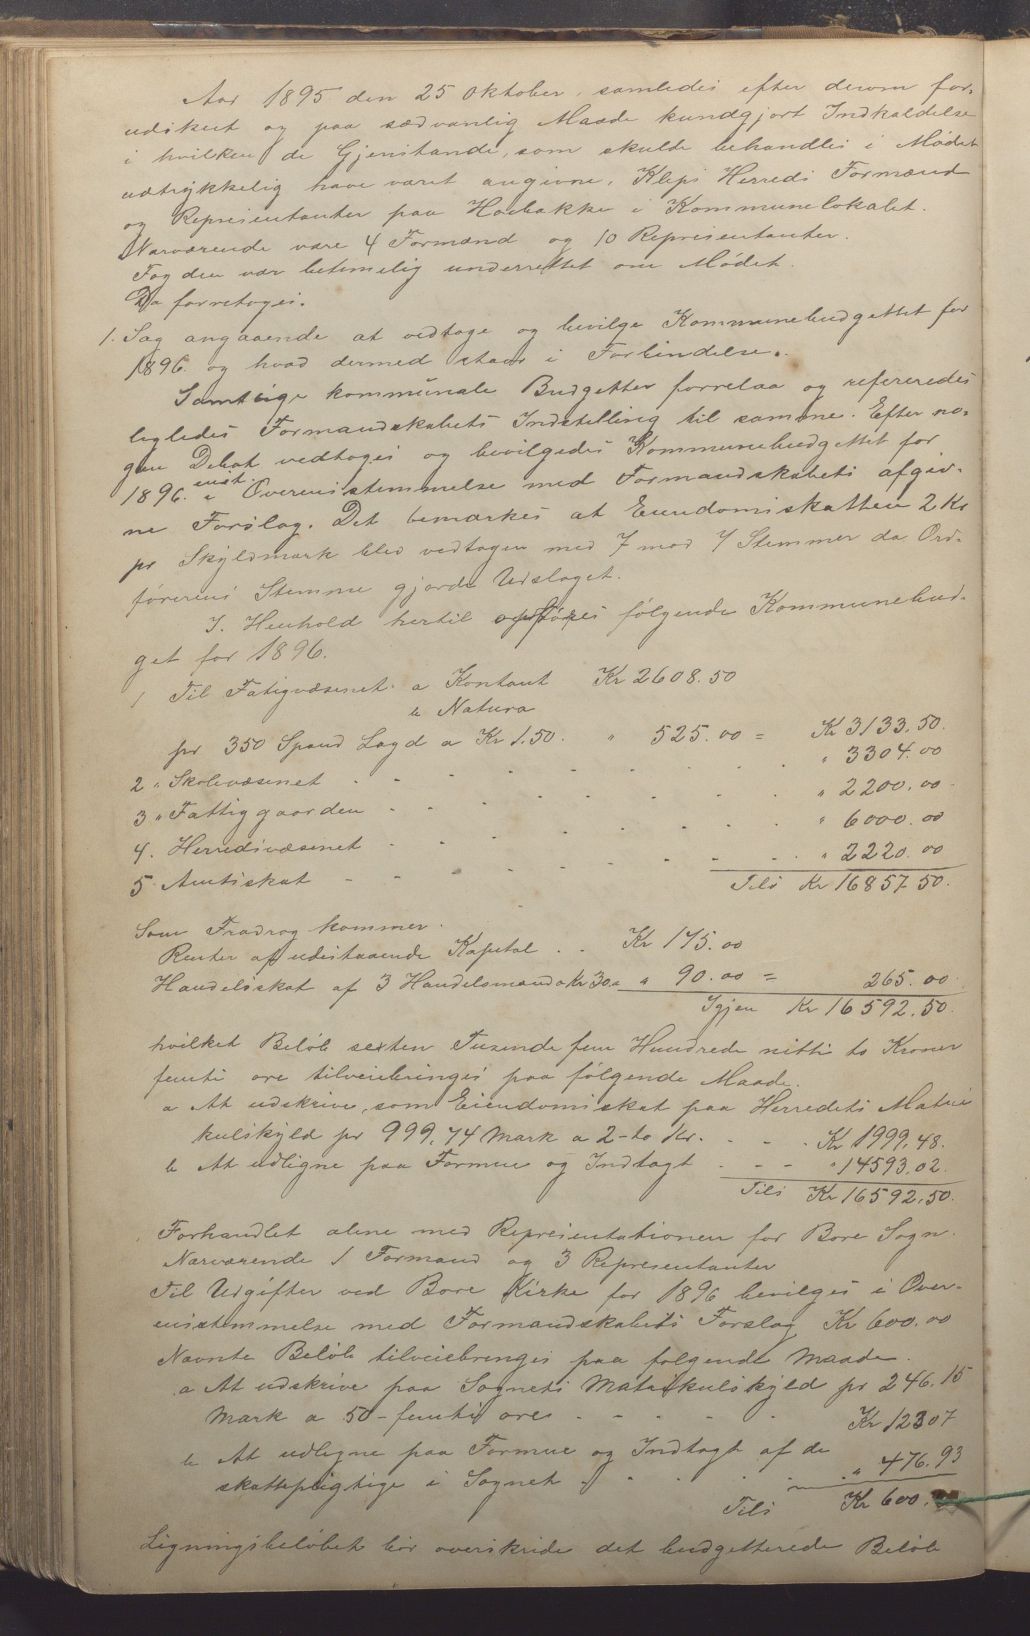 Aar 1895 den 25 Oktober, samledes efter derom for-
udskeet og paa sædvanlig Maade kundgjort Indkaldelse
i hvilken de Gjenstande, som skulde behandles i Mødet
udtrykkelig have været angivne, Kleps Herreds Formænd
og Repræsentanter paa Hoebakke i Kommunelokalet.
Nærværende vare 4 Formænd og 10 Repræsentanter.
Fogden var betimelig underrettet om Mødet.
Da foretoges.
1. Sag angaaende at vedtage og bevilge Kommunebudgettet for
1896. og hvad dermed staar i Forbindelse.
Samtlige kommunale Budgetter forrelaa og refereredes
ligledes Formandskabets Indstilling til samme. Efter no-
gen Debat vedtoges og bevilgedes Kommunebudgettet for
1896. i Overensstemmelse med Formandskabets afgiv-
ne Forslag. Det bemærkes at Eiendomsskatten 2 Kr
pr Skyldmark blev vedtagen med 7 mod 7 Stemmer da Ord-
førerens Stemme gjorde Udslaget.
I. Henhold hertil opføres følgende Kommunebud-
get for 1896.
1 Til Fatigvæsenet a Kontant Kr 2608.50
b Natura
pr 350 Spand Lagd a Kr 1.50. " 525.00 = Kr 3133.50.
2 " Skolevæsenet - - - - - - " 3304.00
3 " Fattiggaarden - - - - - - " 2200.00
4. Herredsvæsenet - - - - - - " 6000.00
5 Amtsskat - - - - - - " 2220.00
Tils Kr 16857.50.
Som Fradrag kommer.
Renter af udestaaende Kapital . . Kr 175.00
Handelsskat af 3 Handelsmænd a Kr 30.- " 90.00 = 265.00
Igjen Kr 16592.50.
hvilket Beløb sexten Tusende fem Hundrede nitti to Kroner
femti øre tilveiebringes paa følgende Maade.
a At udskrive, som Eiendomsskat paa Herredets Matri
kulskyld pr 999,74 Mark a 2-to Kr. - - - Kr 1999,48.
b At udligne paa Formue og Indtægt - - - " 14593,02.
Tils Kr 16592,50.
Forhandlet alene med Repræsentationen for Bore Sogn.
Nærværende 1 Formand og 3 Repræsentanter
Til Udgifter ved Bore Kirke for 1896 bevilges i Over-
ensstemmelse med Formandskabets Forslag Kr 600.00
Nævnte Beløb tilveiebringes paa følgende Maade.
a At udskrive paa Sognets Matrikulskyld pr 246.15
Mark a 50 - femti øre - - - - - Kr 12307
b At udligne paa Formue og Indtægt af de
skattepligtige i Sognet - - - - - " 476.93
Tils Kr 600.
Ligningsbeløbet bør overskride det budgetterede Beløb